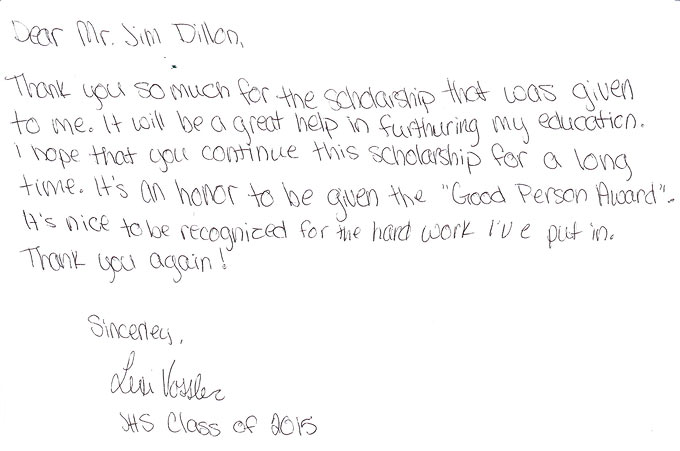 Dear Mr. Jim Dillon,
Thank you so much for the scholarship that was given
to me. It will be a great help in furthuring my education.
I hope that you continue this scholarship for a long
time. It's an honor to be given the "Good Person Award".
It's nice to be recognized for the hard work I've put in.
Thank you again!
Sincerley,
Vossler
JHS Class of 2015